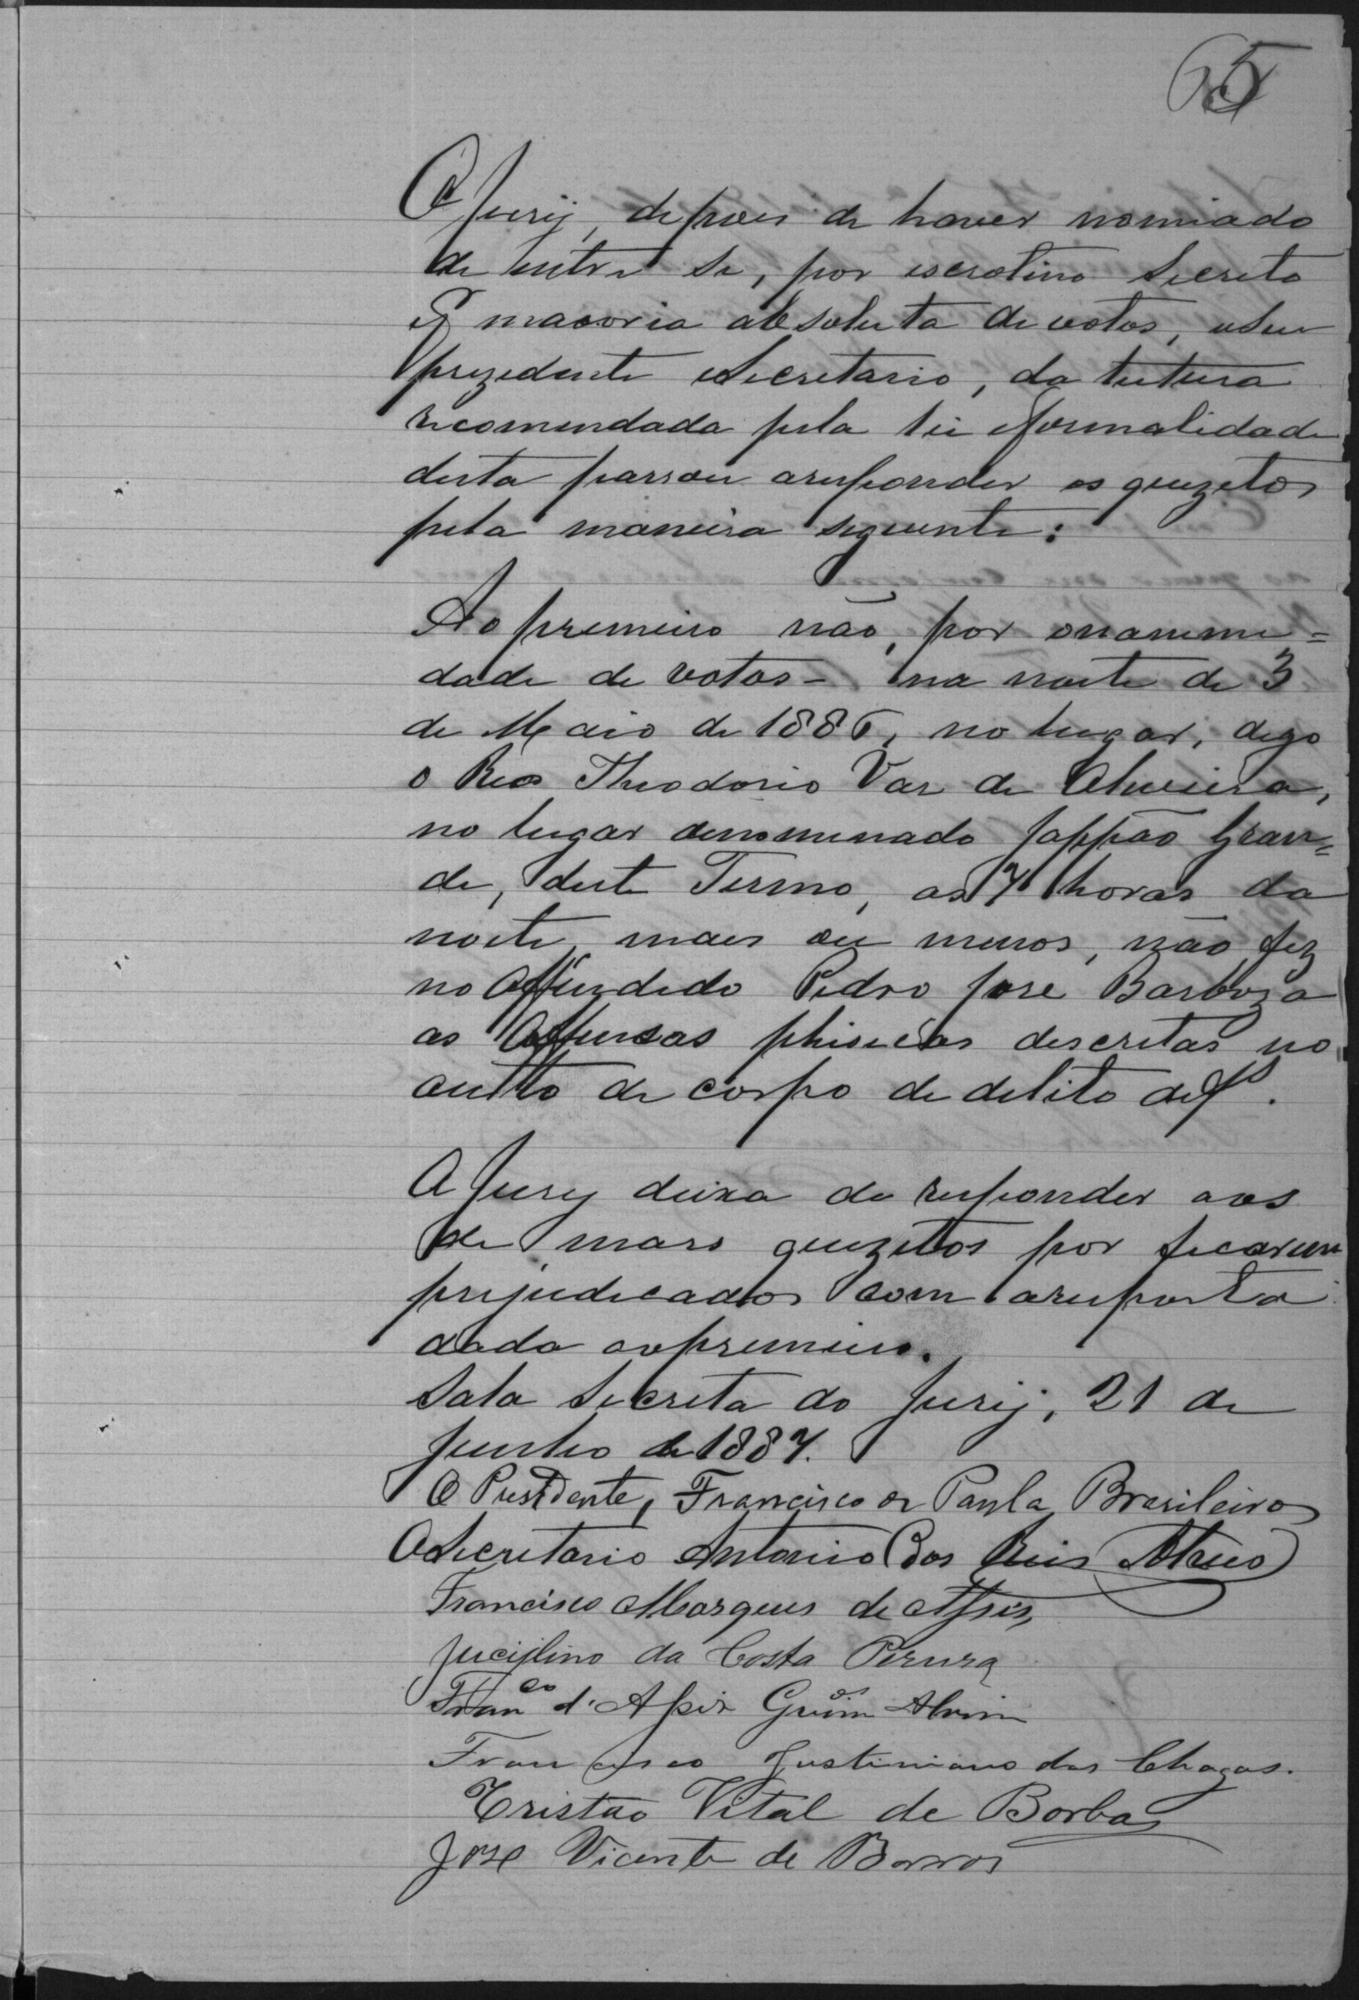 65
O Jury, depois de haver nomiado
de entre si, por escrotino secreto
e maioria absoluta de votos, oseu
prezedente eSecretario, da leitura
recomendada pela lei eformalidade
desta passou aresponder os quezetos
pela maneira seguente:
Ao premeiro não, por onanime=
dade de votos - na noite de 3
de Maio de 1886, no lugar, digo
o Reo Theodorio Vaz de Oliveira,
no lugar denominado Jappão Gran=
de, deste Termo, as 7 horas da
noite, mais ou menos, não fez
no Offendido Pedro José Barboza
as Offensas phisicas descretas no
autto de corpo de delito de f
O Jury deixa de responder aos
de mais quezitos por ficarem
prejudecados com aresposta
dada aopremeiro.
Sala Secreta do Jury, 21 de
Junho de 1887.
O Presidente, Francisco de Paula Brasileiro
OSecretario Antonio dos Reis
Francisco Marques de Assis,
Jucijlino da Costa Perura
Fran.co d'Assis Guim.es Alvim
Francisco Justiniano das Chagas.
Tristão Vital de Borba
José Vicente de Barros